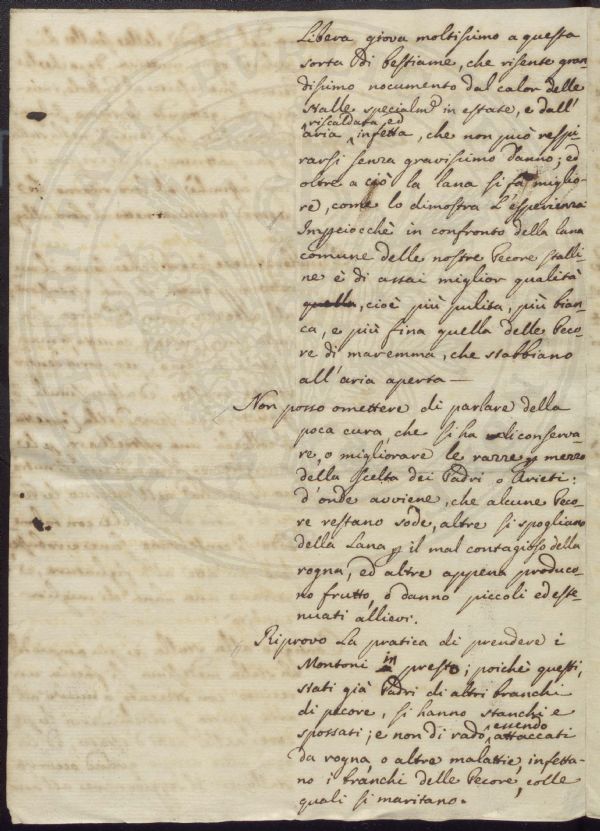 Libera giova moltissimo a questa
sorta di bestiame, che risente gran
dissimo nocumento dal calor delle
stalle specialmᵉ in estate, e dall'
riscaldata, ed
aria infetta, che non può respi-
rarsi senza gravissimo danno; ed
oltre a ciò la lana si fa miglio-
re, come lo dimostra l'esperienza
Imperciocchè in confronto della lana
comune delle nostre Pecore stalli-
ne è di assai miglior qualità
quella, cioè più pulita, più bian-
ca, e più fina quella delle Peco-
re di maremma, che stabbiano
all'aria aperta —
Non posso omettere di parlare della
poca cura, che si ha di conserva-
re, o migliorare le razze p mezzo
della scelta dei Padri o Arieti:
d'onde avviene, che alcune Peco-
re restano sode, altre si spogliano
della Lana p il mal contagioso della
rogna, ed altre appena produco-
no frutto, o danno piccoli ed este-
nuati allievi.
Riprovo la pratica di prendere i
Montoni in presto; poichè questi,
stati già Padri di altri branchi
di pecore, si hanno stanchi e
spossati; e non di rado, essendo
attaccati
da rogna, o altre malattie, infetta-
no i branchi delle Pecore, colle
quali si maritano.